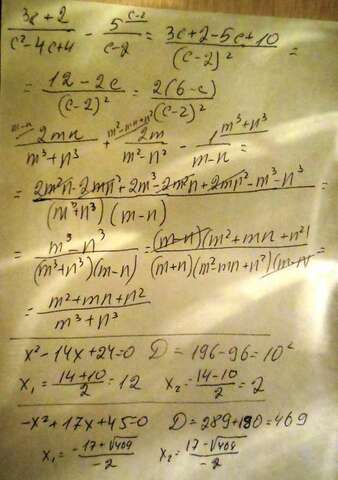 (3c + 2)/(c² - 4c + 4) - 5^(c-2)/(c-2) = (3c + 2 - 5c + 10)/(c-2)² =
= (12 - 2c)/(c-2)² = 2(6 - c)/(c-2)²
^(m-n) 2mn/(m³ + n³) + ^(m²-mn+n²) 2m/(m² - n²) - 1^(m³+n³)/(m-n) =
= (2m²n - 2mn² + 2m³ - 2m²n + 2mn² - m³ - n³)/((m³+n³)(m-n)) =
= (m³ - n³)/((m³+n³)(m-n)) = ((m-n)(m² + mn + n²))/((m+n)(m²-mn+n²)(m-n)) =
= (m² + mn + n²)/(m³ + n³)
x² - 14x + 24 = 0 D = 196 - 96 = 10²
x₁ = (14 + 10)/2 = 12 x₂ = (14 - 10)/2 = 2
-x² + 17x + 45 = 0 D = 289 + 180 = 469
x₁ = (-17 + √469)/-2 x₂ = (17 - √469)/-2